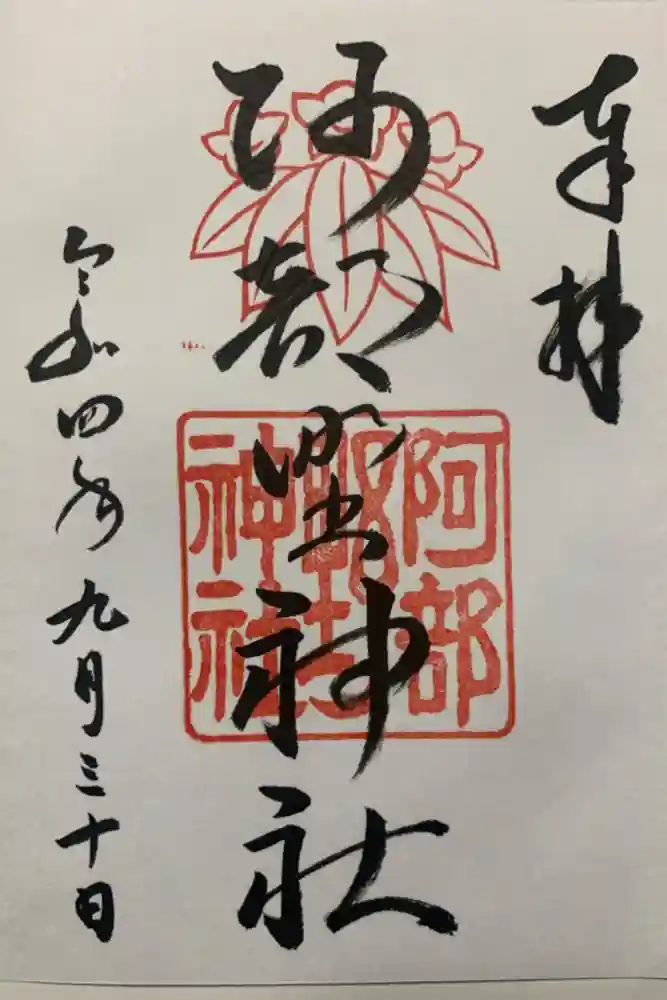 奉拝
阿部墅神社
阿部
墅
神社
令和四年九月三十日